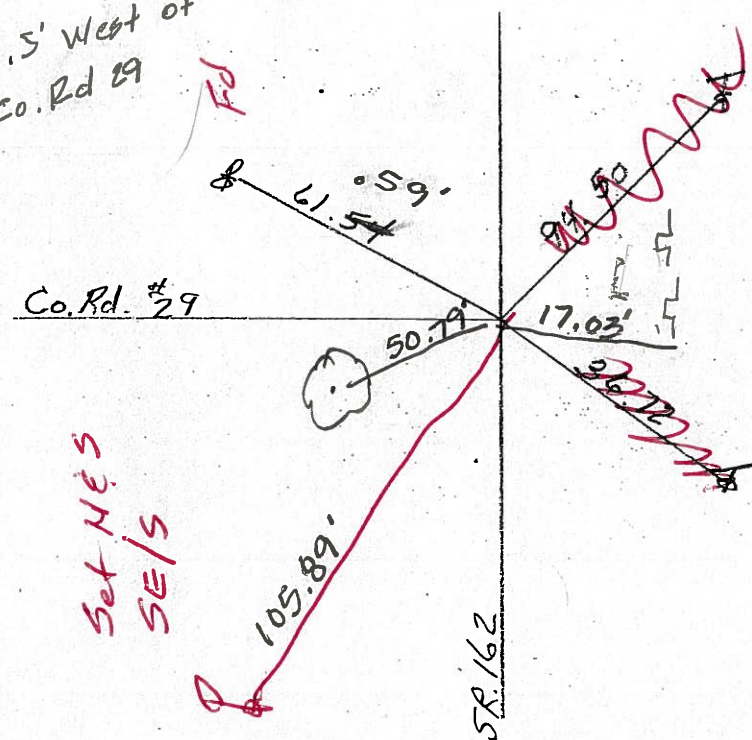 .5' West of
Co. Rd 29
Fd
61.54
.59'
94.50
Co. Rd. #29
50.79'
17.03'
36.72
Set NE/S
SE/S
105.89'
SR. 162